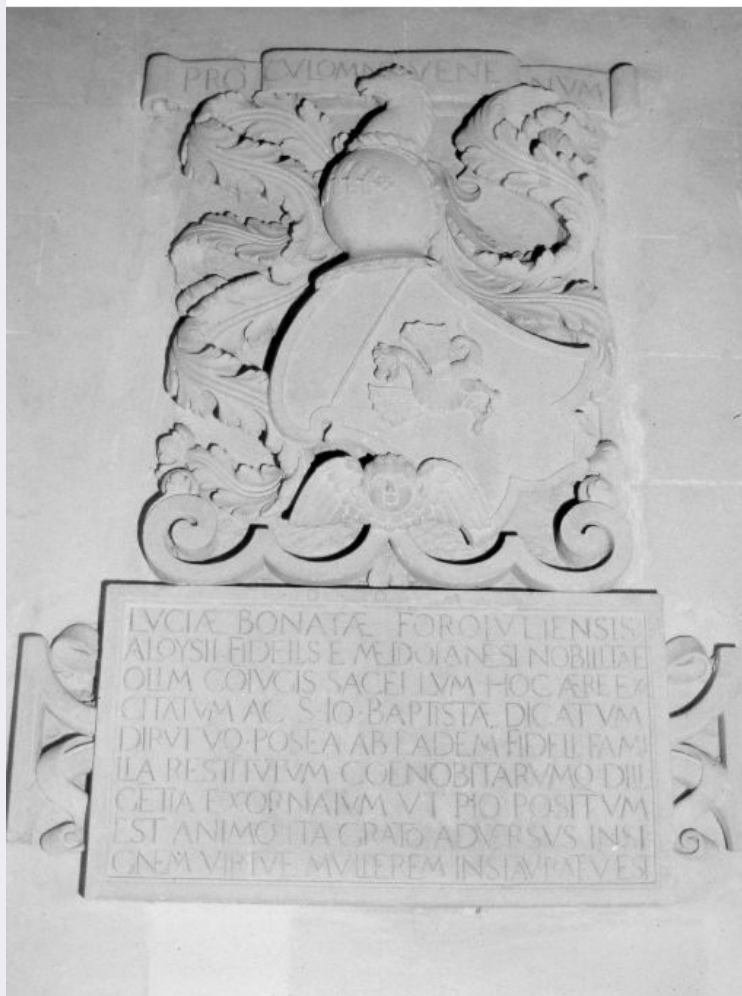 PRO CVL OMN VENE NVM
D O M
LVCIÆ BONATÆ FOROIVLIENSIS
ALOYSII FIDELIS E MEIDOLANESI NOBILITAE
OLIM COIVGIS SACELLVM HOC ÆRE EX
CITATVM AC S IO·BAPTISTÆ DICATVM
DIRVTVQ·POSEA AB EADEM FIDELI FAMI
LIA RESTITVTVM COENOBITARVMQ DILI
GETIA EXORNATVM VT PIO POSITVM
EST ANIMO ITA GRATO ADVERSVS INSI
GNEM VIRTVE MVLIEREM INSTAVRATV EST